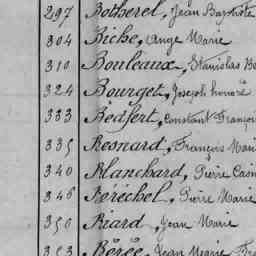 297 Botherel, Jean Baptiste
304 Biche, Ange Marie
310 Bouleaux, Stanislas
324 Bourget, Joseph honoré
333 Bedfert, Constant François
335 Besnard, François Marie
340 Blanchard, Pierre
346 Béréchel, Pierre Marie
350 Biard, Jean Marie
353 Bérée, Jean Marie